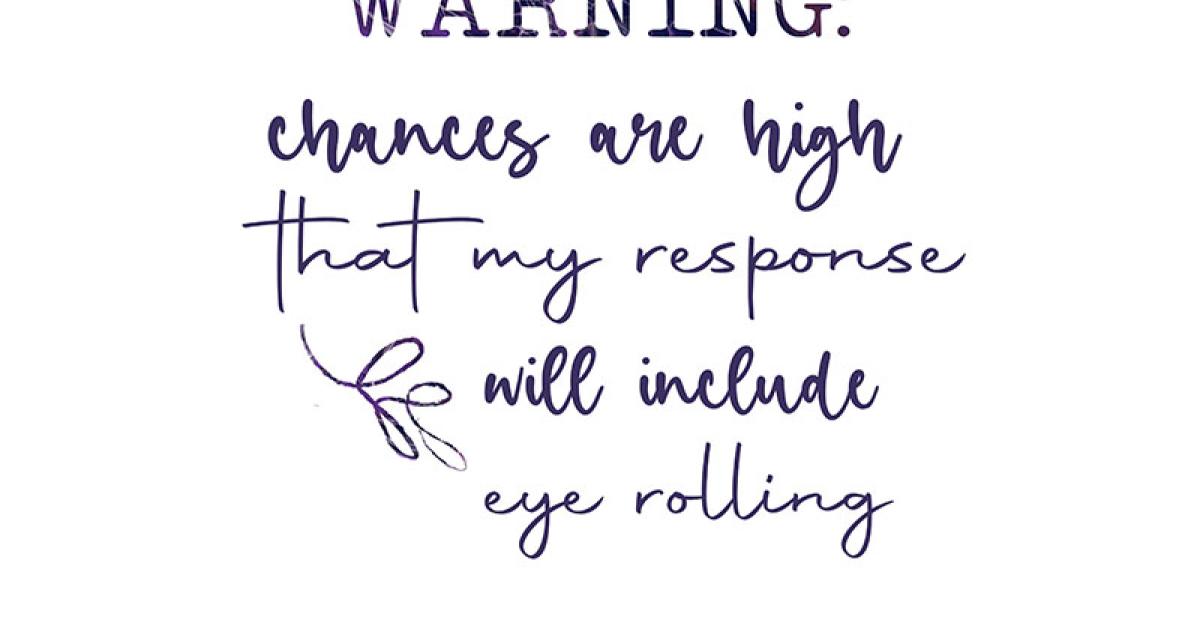 WARNING:
chances are high
that my response
will include
eye rolling